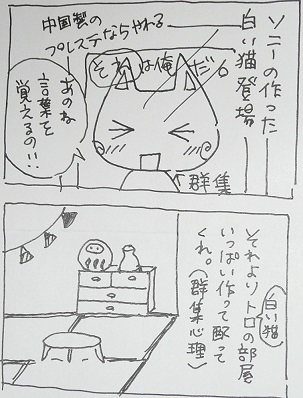 ソニーの作った
白い猫登場
中国製の
プレステならやれる
それは俺だ。
あのね
言葉を
覚えるの!!
群集
白い猫
それよりトロの部屋
いっぱい作って配って
くれ。(群集心理)